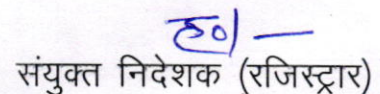 ह०/—
संयुक्त निदेशक (रजिस्ट्रार)